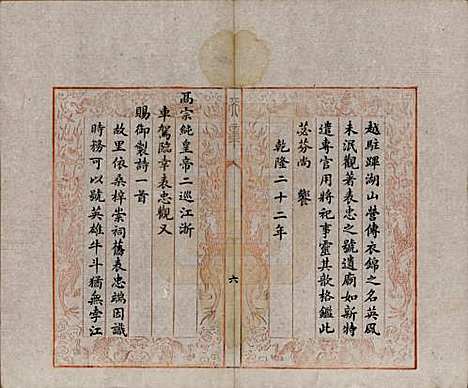 越駐蹕湖山嘗傳衣錦之名英風
未泯觀著表忠之號遺廟如新特
遣專官用將祀事靈其歆格鑑此
苾芬尚饗
乾隆二十二年
六
高宗純皇帝二巡江浙
車駕臨幸表忠觀又
賜御製詩一首
故里依桑梓崇祠舊表忠端因識
時務可以號英雄牛斗猶無孛江